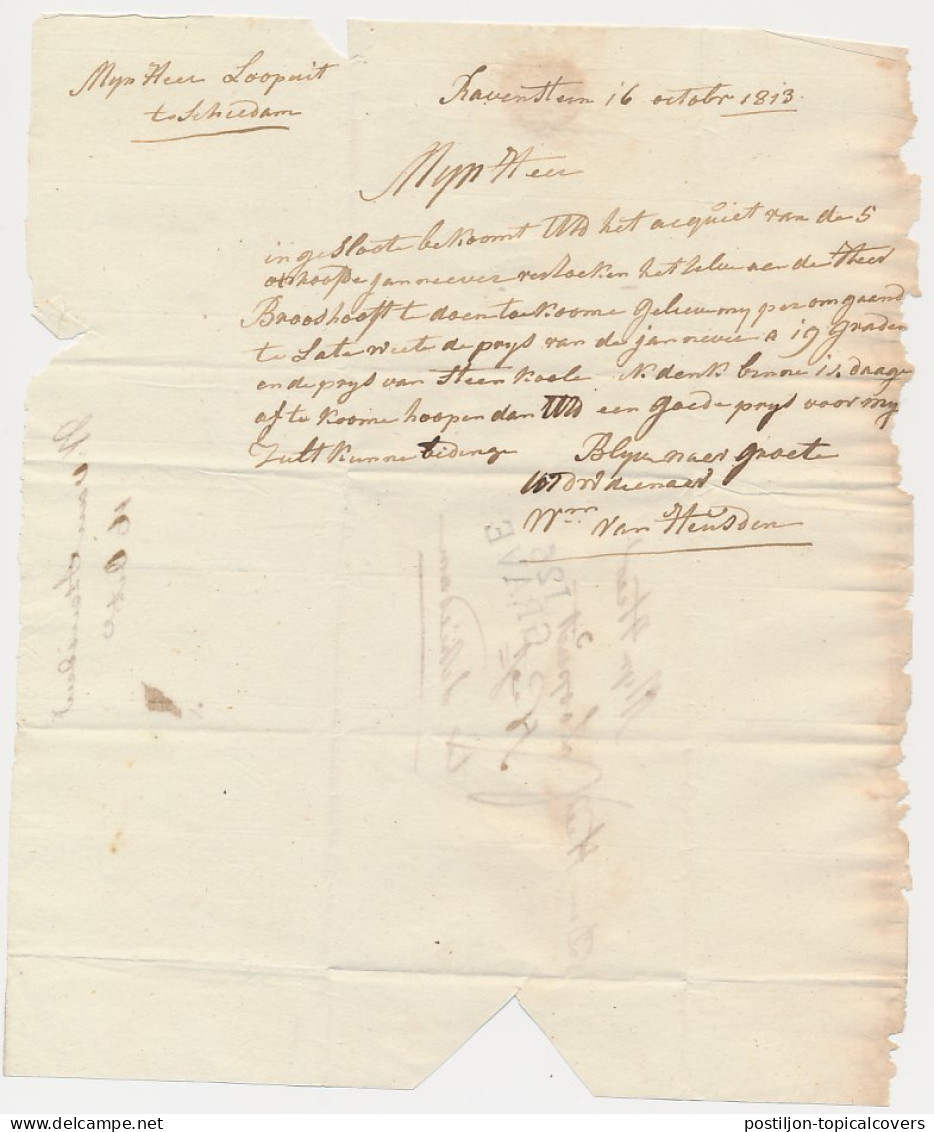 Mijn Heer Loopuit
te Schiedam
Ravenstein 16 octobr 1813.
Mijn Heer
in gesloote bekoomt UWd het acquiet van de 5
oxhoofde janneever versoeken het selve aen de Heer
Broodhooft te doen toekoome Gelieve my per omgaend
te Late weete de prys van de jannever a 19 Graden
en de prys van Steen koole denk binne daage
af te koome hoopen dan UWd een Goede prys voor my
Zult kunne bidinge Blyve naer Groete
UWd dienaer
Wm van Heusden
16 Octo
125
GRAVE
Mijn Heer
Schiedam
postiljon-topicalcovers.com